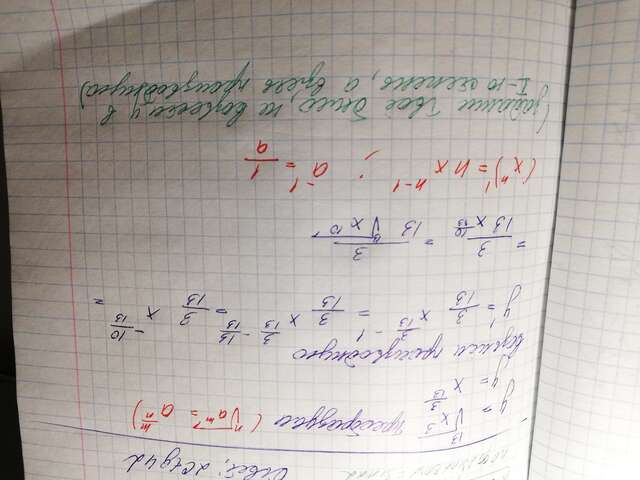 Ответ: 2Ctg42
y = ¹³√x³ преобразуем (ⁿ√aᵐ = a^(m/n))
y = x^(3/13)
возьмем производную
y' = 3/13 x^(3/13 - 1) = 3/13 x^(3/13 - 13/13) = 3/13 x^(-10/13) =
= 3/(13 x^(10/13)) = 3/(13 ¹³√x¹⁰)
(xⁿ)' = n xⁿ⁻¹ ; a⁻¹ = 1/a
(задание твоё было, не возвести y в
I-ю степень, а взять производную)